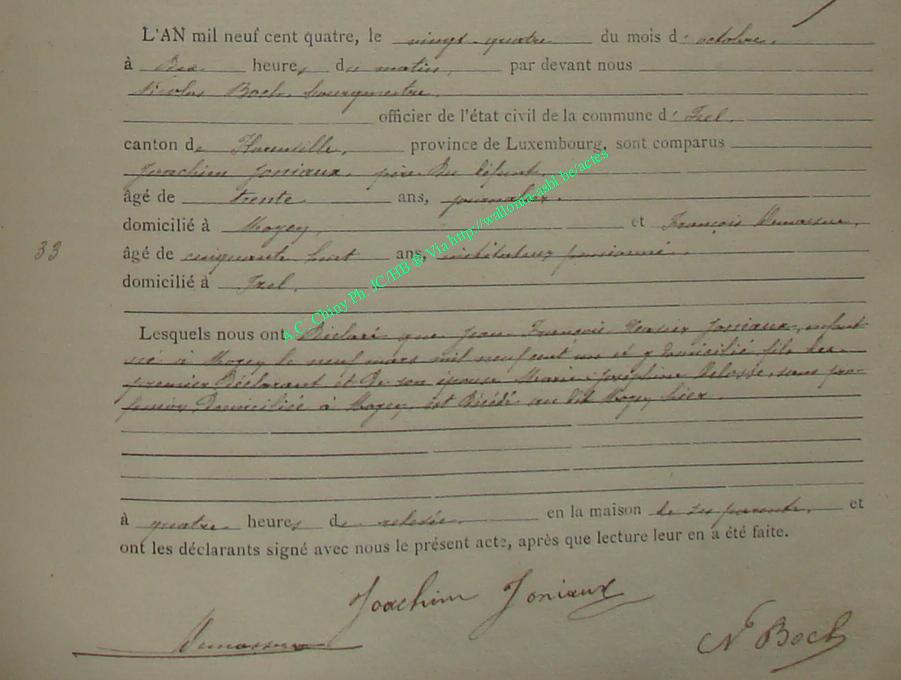 L'AN mil neuf cent quatre, le vingt-quatre du mois d'octobre,
à Dix heures du matin, par devant nous
Nicolas Boch, bourgmestre,
officier de l'état civil de la commune d'Izel,
canton de Florenville, province de Luxembourg, sont comparus
Joachim Joniaux, père du défunt,
âgé de trente ans, journalier,
domicilié à Moyen, et François Demasseur,
33
âgé de cinquante huit ans, instituteur pensionné,
domicilié à Izel,
Lesquels nous ont Déclaré que Jean François Joniaux, enfant
né à Moyen le neuf mars mil neuf cent un et y domicilié fils du
premier Déclarant et de son épouse Marie Joséphine Delosse, sans pro-
fession, Domiciliée à Moyen, est Décédé au dit Moyen hier,
à quatre heures de relevée, en la maison de ses parents, et
ont les déclarants signé avec nous le présent acte, après que lecture leur en a été faite.
Joachim Joniaux
Demasseur
N Boch
A.C. Chiny Ph. JC/HB ® Via http://wallonia-asbl.be/actes